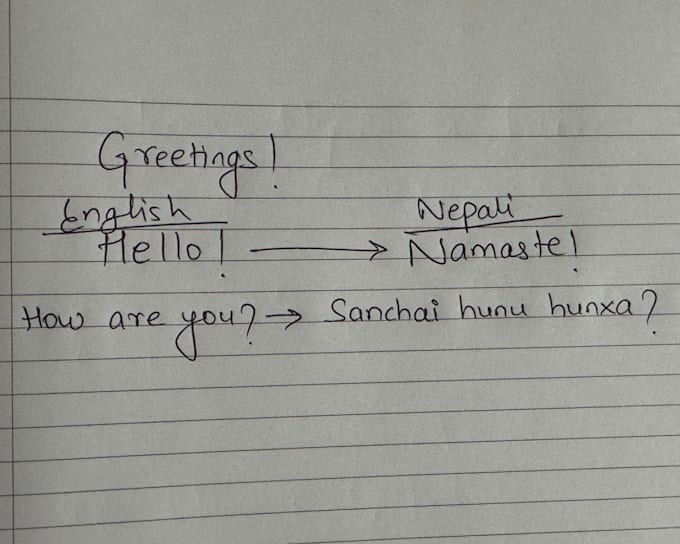 Greetings!
English Nepali
Hello! → Namaste!
How are you? → Sanchai hunu hunxa?